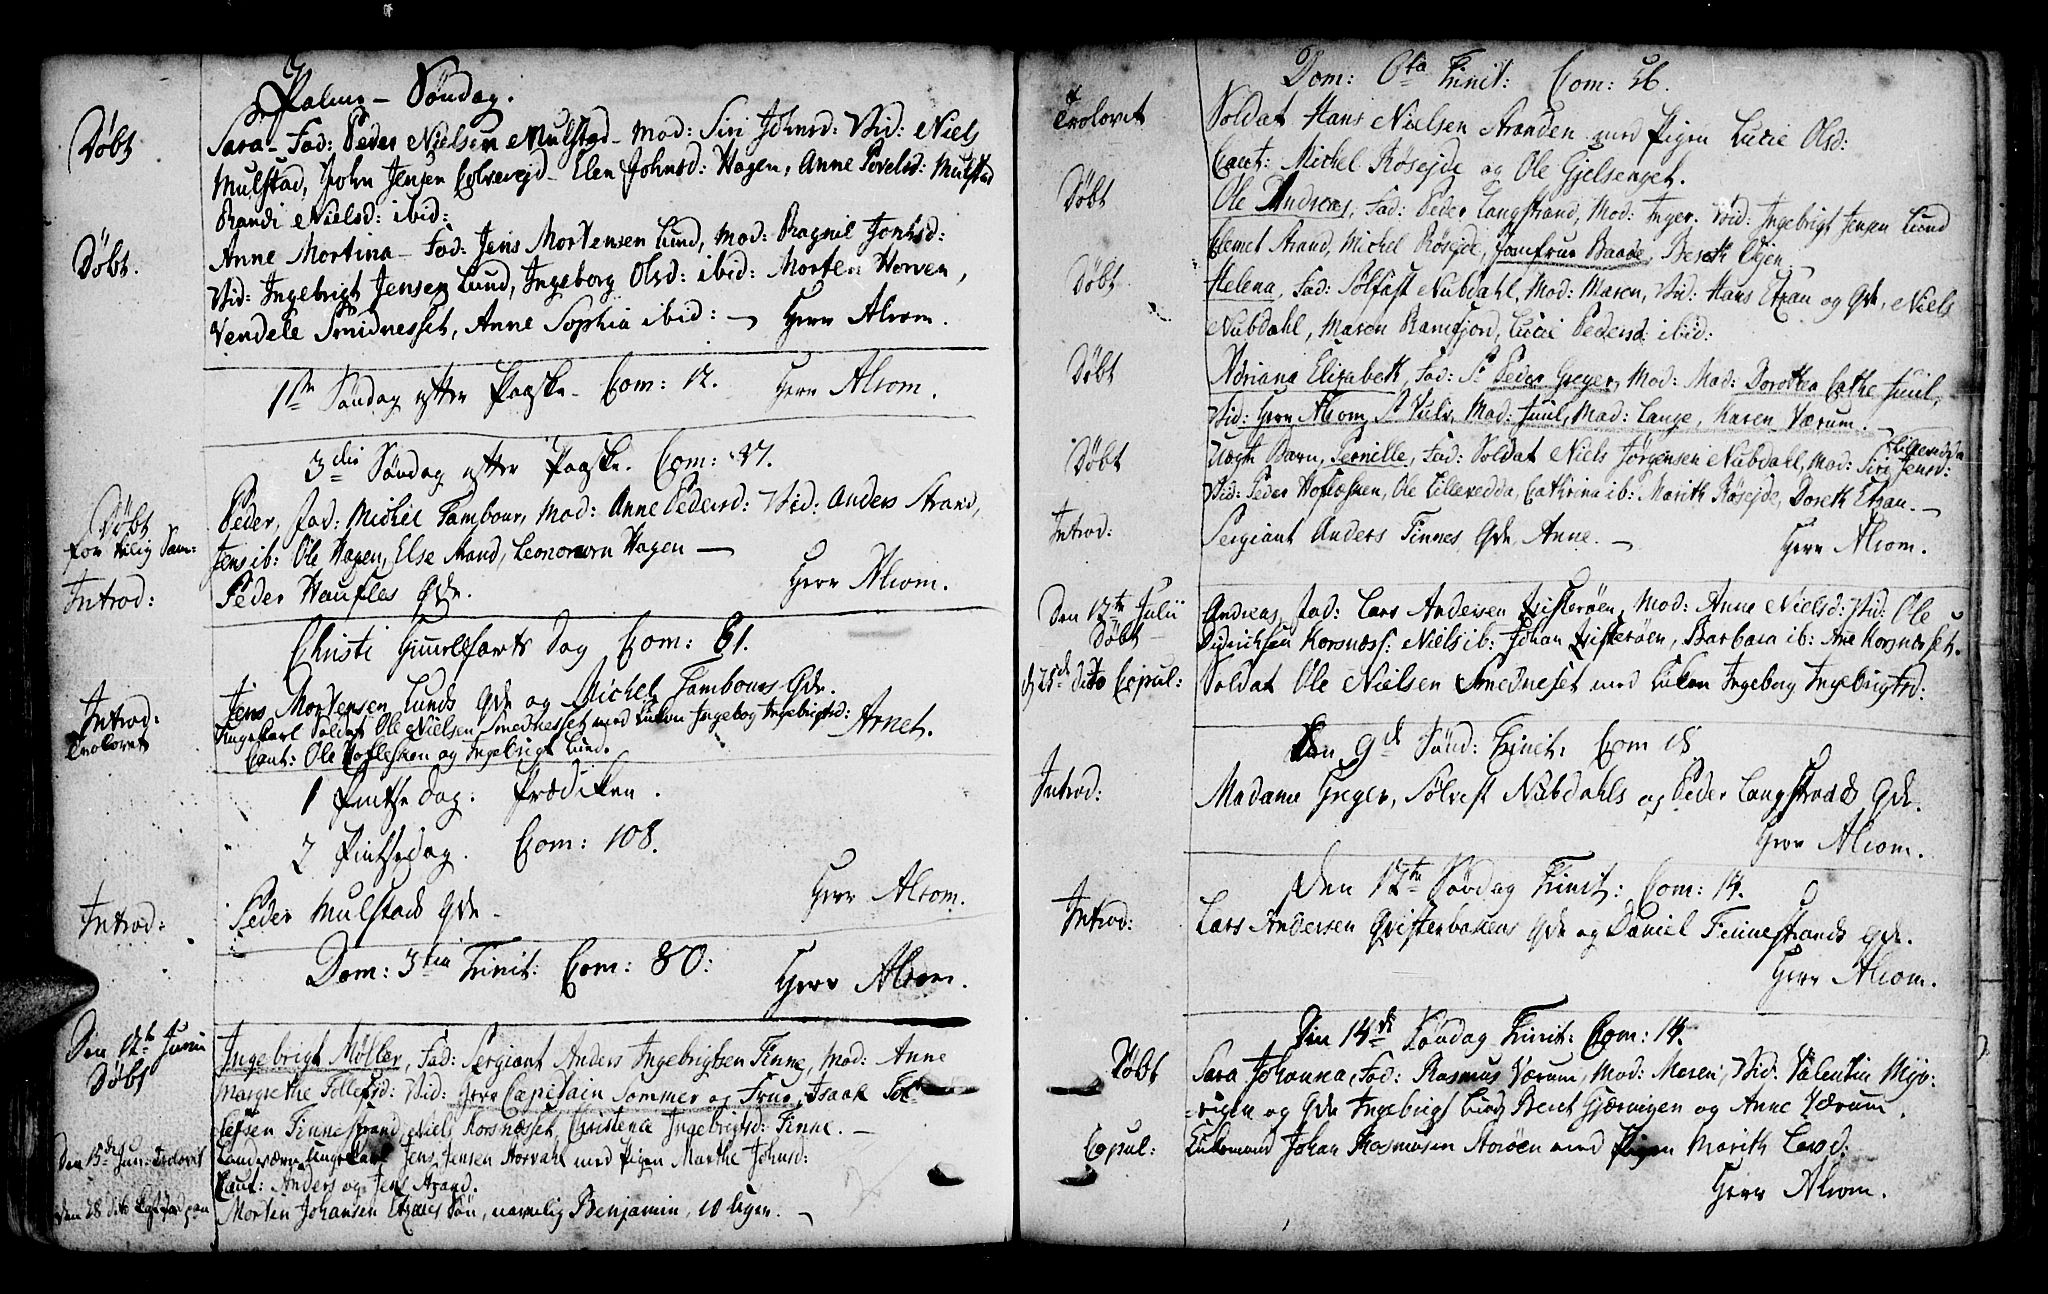 Palme-Søndag.
Døbt
Sara - Fad: Peder Nielsen Mulstad - Mod: Siri Johnsd: Vid: Niels
Mulstad, John Jensen - Elen Johnsd: Hagen, Anne Povelsd: Mulstad
Randi Nielsd: ibid:
Døbt.
Anne Mortina - Fad: Jens Mortensen Lund, Mod: Ragnil Jonsd:
Vid: Ingebrigt Jensen Lund, Ingeborg Olsd: ibid: Morten Horven,
Vendele Smidnesset, Anne Sophia ibid: - Herr Alrom.
1ste Søndag efter Paaske - Com: 12. Herr Alrom.
3die Søndag efter Paaske. Com: 97.
Døbt
for Tilig Sam:
Peder, Fad: Michel Tambour, Mod: Anne Pedersd: Vid: Anders Strand,
Jens ib: Ole Hagen, Else Strand, Leonora Hagen -
Introd:
Peder Haufles Qde. Herr Alrom.
Christi Himelfarts Dag Com: 61.
Introd:
Jens Mortensen Lunds Qde og Michel Tambours Qde.
Trolovet
Ungekarl Soldat Ole Nielsen Smednesset med Enken Ingebor Ingebrigtsd: Arnet.
Caut: Ole Hoflesken og Ingebrigt Lund.
1 Pintsedag. Prædiken.
2 Pintsedag. Com: 108.
Herr Alrom.
Introd:
Peder Mulstads Qde -
Dom: 3tia Trinit: Com: 80: Herr Alrom.
Den 12te Junii
Døbt
Ingebrigt Møller, Fad: Sergiant Anders Ingebrigtsen Finne, Mod: Anne
Margrethe Tollefsd: Vid: Herr Capitain Sommer og Frue, Isaak Tol-
lefsen Finnestrand, Niels Korsnæset, Christence Ingebrigtsd: Finne. -
Den 15de Jun: Trolovet
Landværn Ungekarl Jens Jensen Horvahl med Pigen Marthe Johnsd:
Caut: Anders og Jens Strand.
Den 28 dito
Morten Johansen Etrans Søn, navnlig Benjamin, 10 Uger. -
Dom: 6ta Trinit: Com: 56.
Trolovet
Soldat Hans Nielsen Stranden med Pigen Lucie Olsd:
Caut: Michel Røsejde og Ole Gjelsenget.
Døbt
Ole Andreas, Fad: Peder Langstrand, Mod: Inger. Vid: Ingebrigt Jensen Lund
Clemet Strand, Michel Røsejde, Jomfrue Baade, Bereth Øjen
Døbt
Helena, Fad: Sølfast Nubdahl, Mod: Maren, Vid: Hans Etran og Qde, Niels
Nubdahl, Maren Ramfjord, Lucie Pedersd: ibid:
Døbt
Adriana Elizabeth, Fad: Sr Peder Greger, Mod: Mad: Dorothea Cathe Juul,
Vid: Herr Alrom, Sr Juul, Mad: Juul, Mad: Lange, Karen Værum. -
Døbt
Uægte Barn, Pernille, Fad: Soldat Niels Jørgensen Nubdahl, Mod: Siri Jensd: Lilleredda
Vid: Peder Hoflesken, Ole Lilleredda, Cathrina ib: Marith Røsejde, Doreth Etran. -
Introd:
Sergiant Anders Finnes Qde, Anne. - Herr Alrom.
Den 12te Julii
Døbt
Andreas, Fad: Lars Andersen Qvisterøen, Mod: Anne Nielsd: Vid: Ole
Didriksen Korsnæss: Niels ib: Johan Qvisterøen, Barbara ib: Ane Korsnæsset.
d 25de dito Copul:
Soldat Ole Nielsen Smedneset med Enken Ingeborg Ingebrigtsd:
Den 9de Sønd: Trinit: Com 18
Introd:
Madame Greger, Sølvest Nubdahls og Peder Langstrands Qde.
Herr Alrom.
Den 12te Søndag Trinit: Com: 14.
Introd:
Lars Andersen Qvisterbakens Qde og Daniel Finnestrands Qde.
Herr Alrom.
Den 14de Søndag Trinit: Com: 14.
Døbt
Sara Johanna, Fad: Rasmus Værum, Mod: Maren, Vid: Valentin
og Qde Ingebrigt Lund, Bent Gjæringen og Anne Værum.
Copul:
Enkemand Johan Rasmusen Storøen med Pigen Marith Larsd:
Herr Alrom.